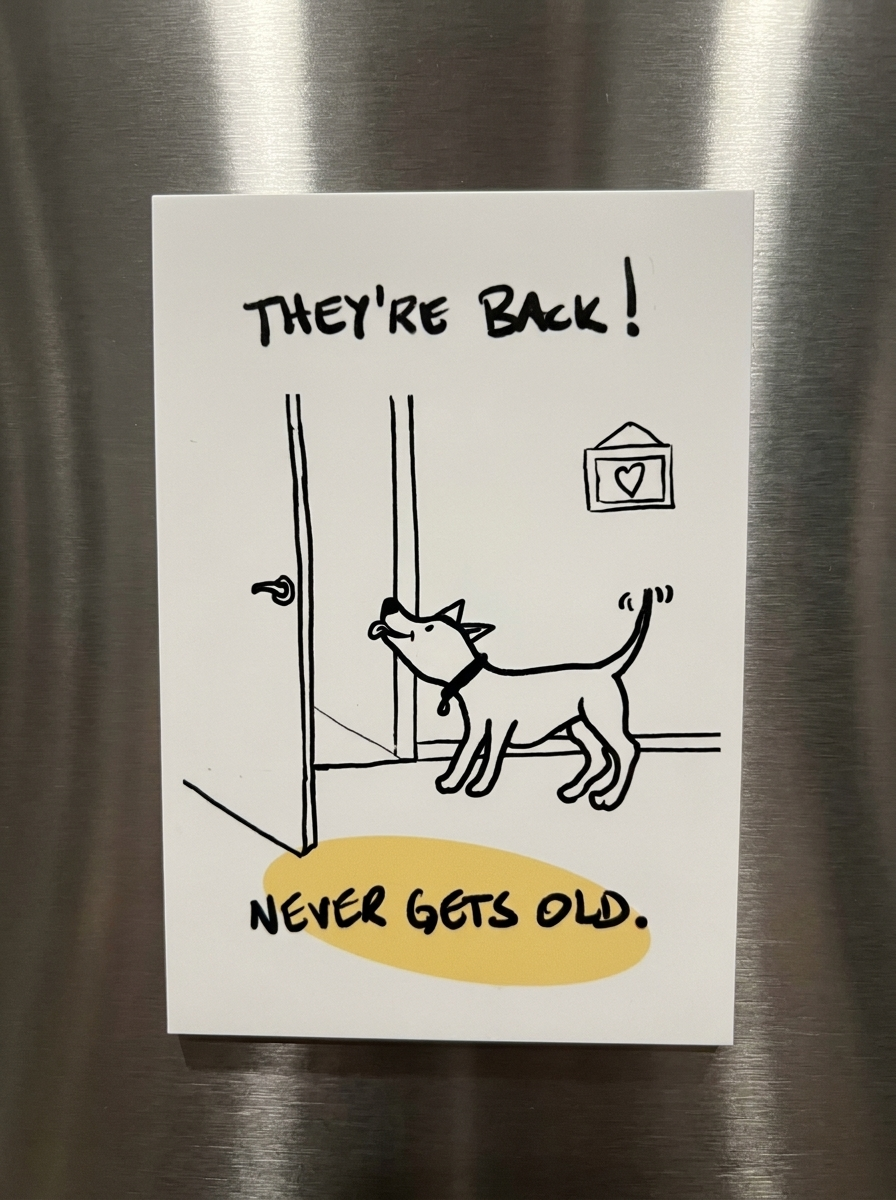 THEY'RE BACK!
NEVER GETS OLD.